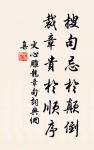 搜句忌於顛倒
裁章貴於順序
文心雕龍章句詞典網